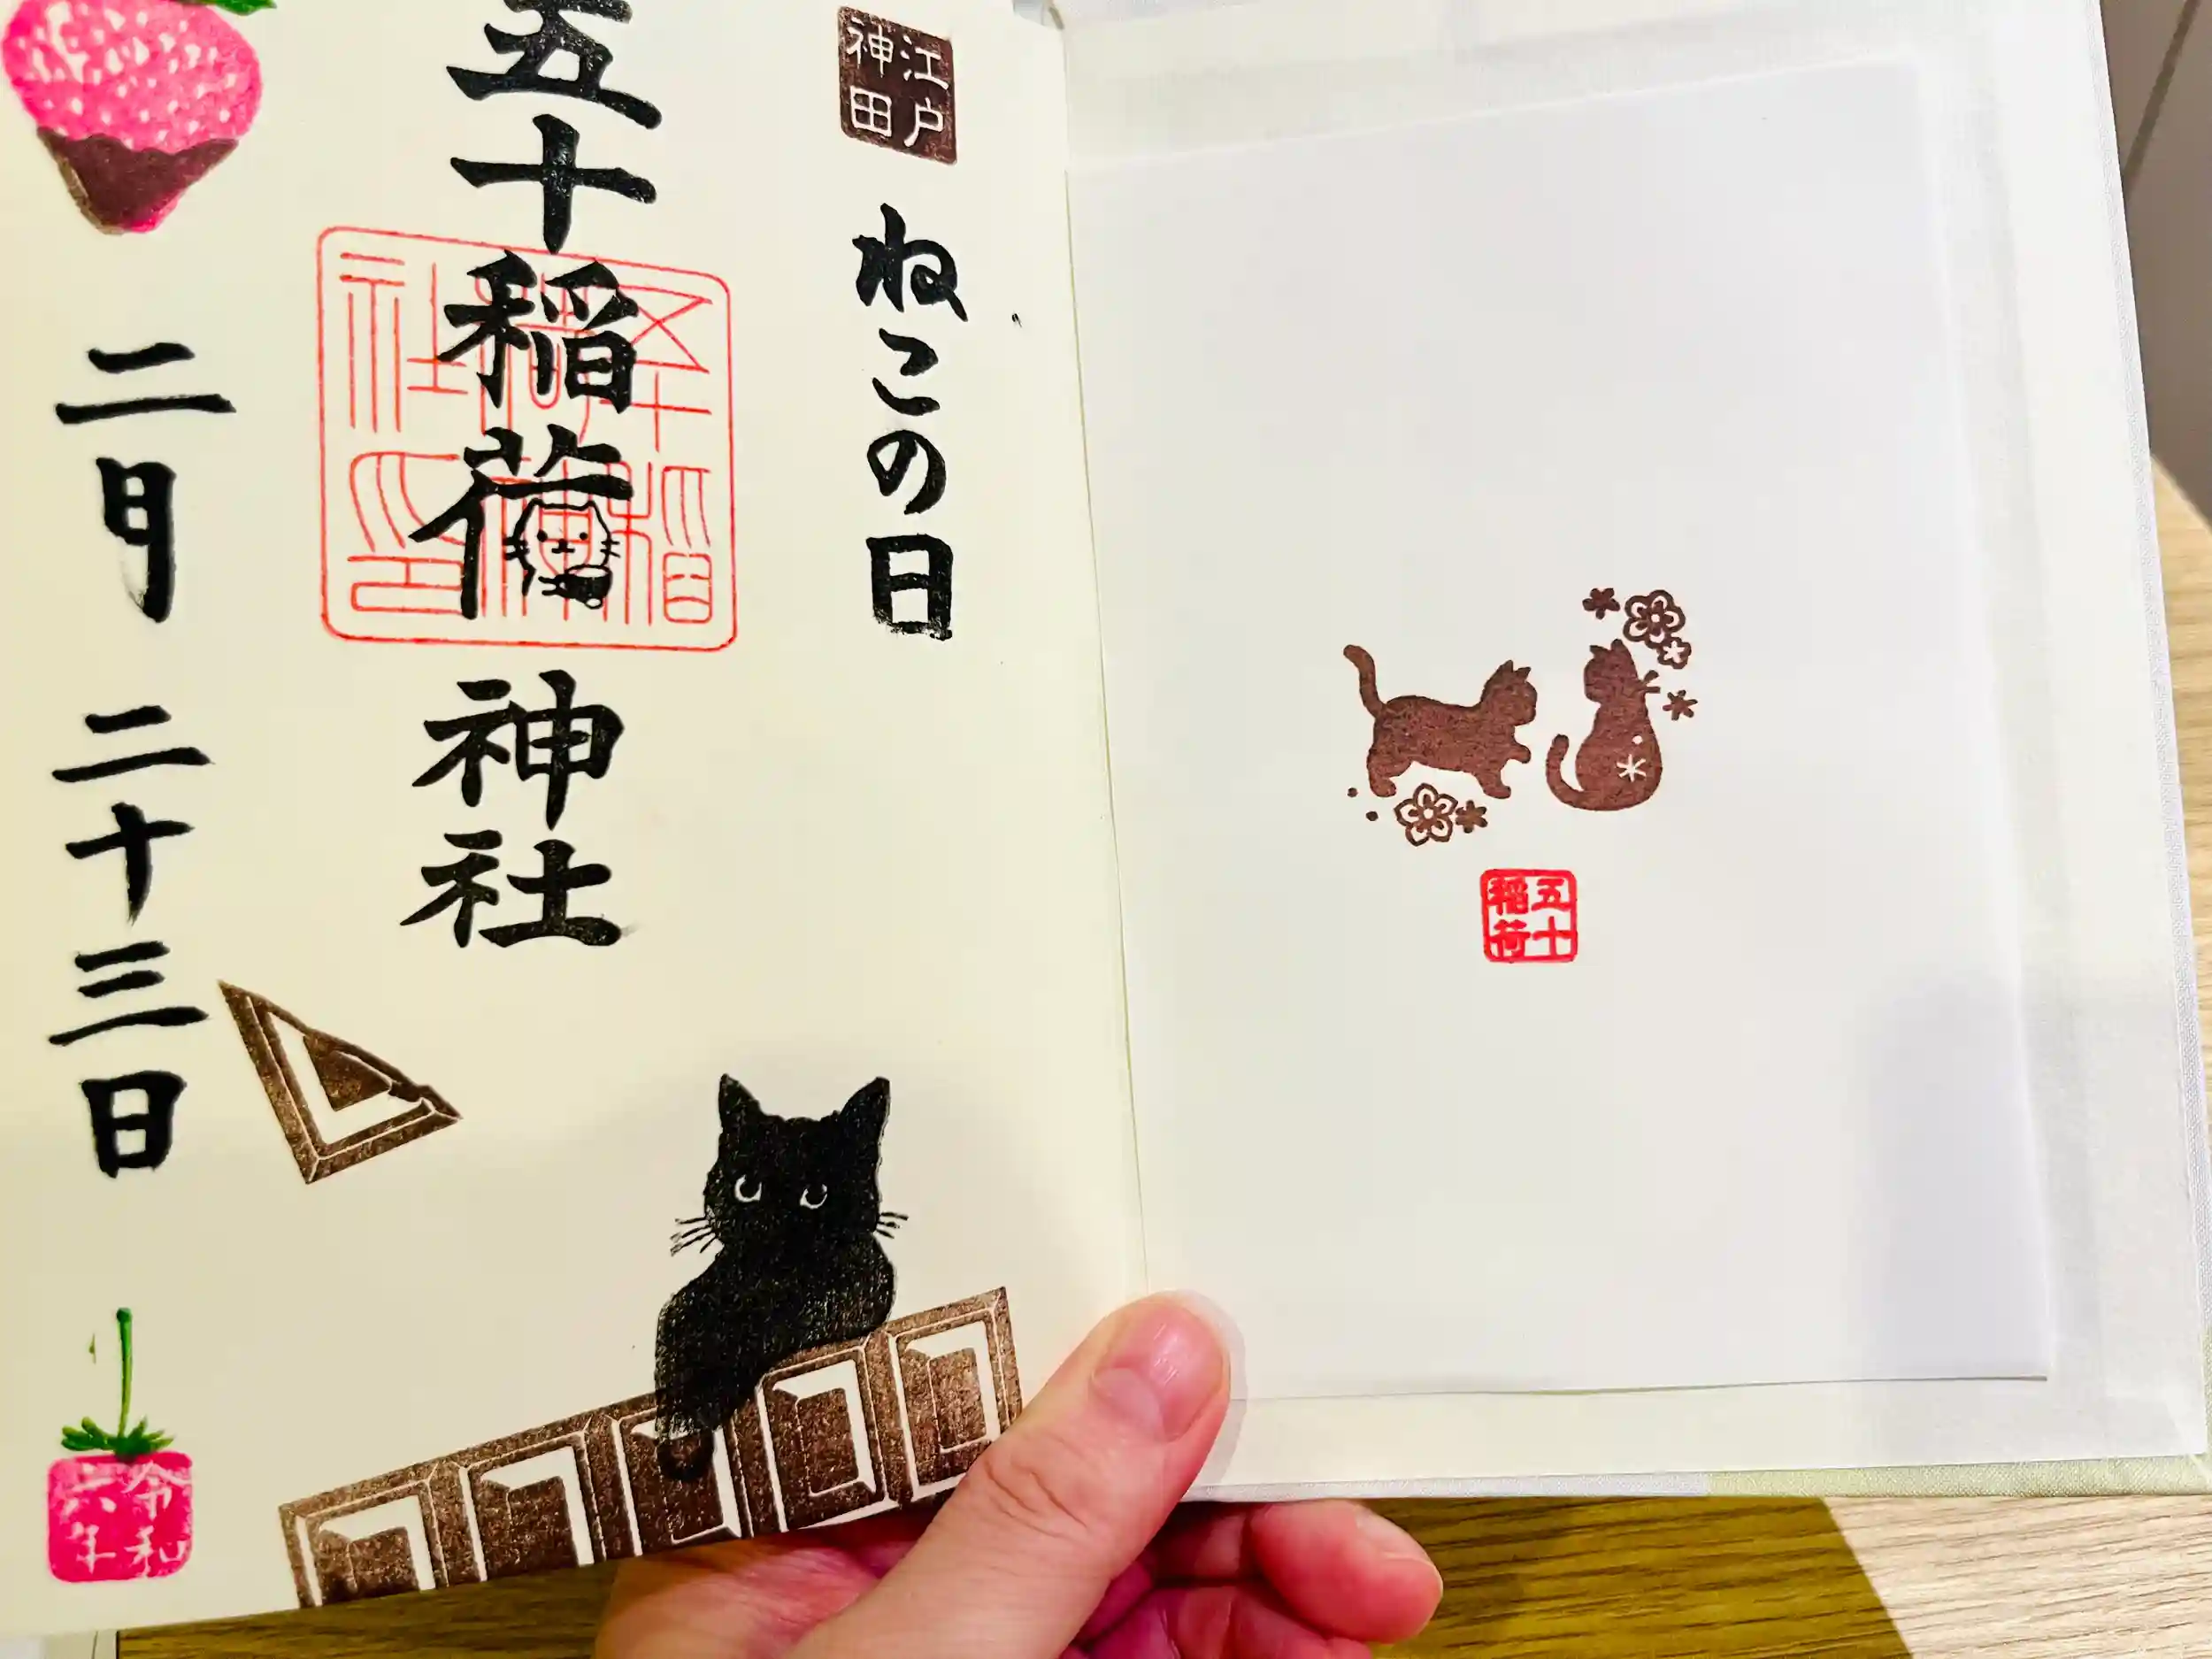 五十
稲荷
江戸
神田
ねこの日
五十稲荷神社
二月 二十三日
令和
六年